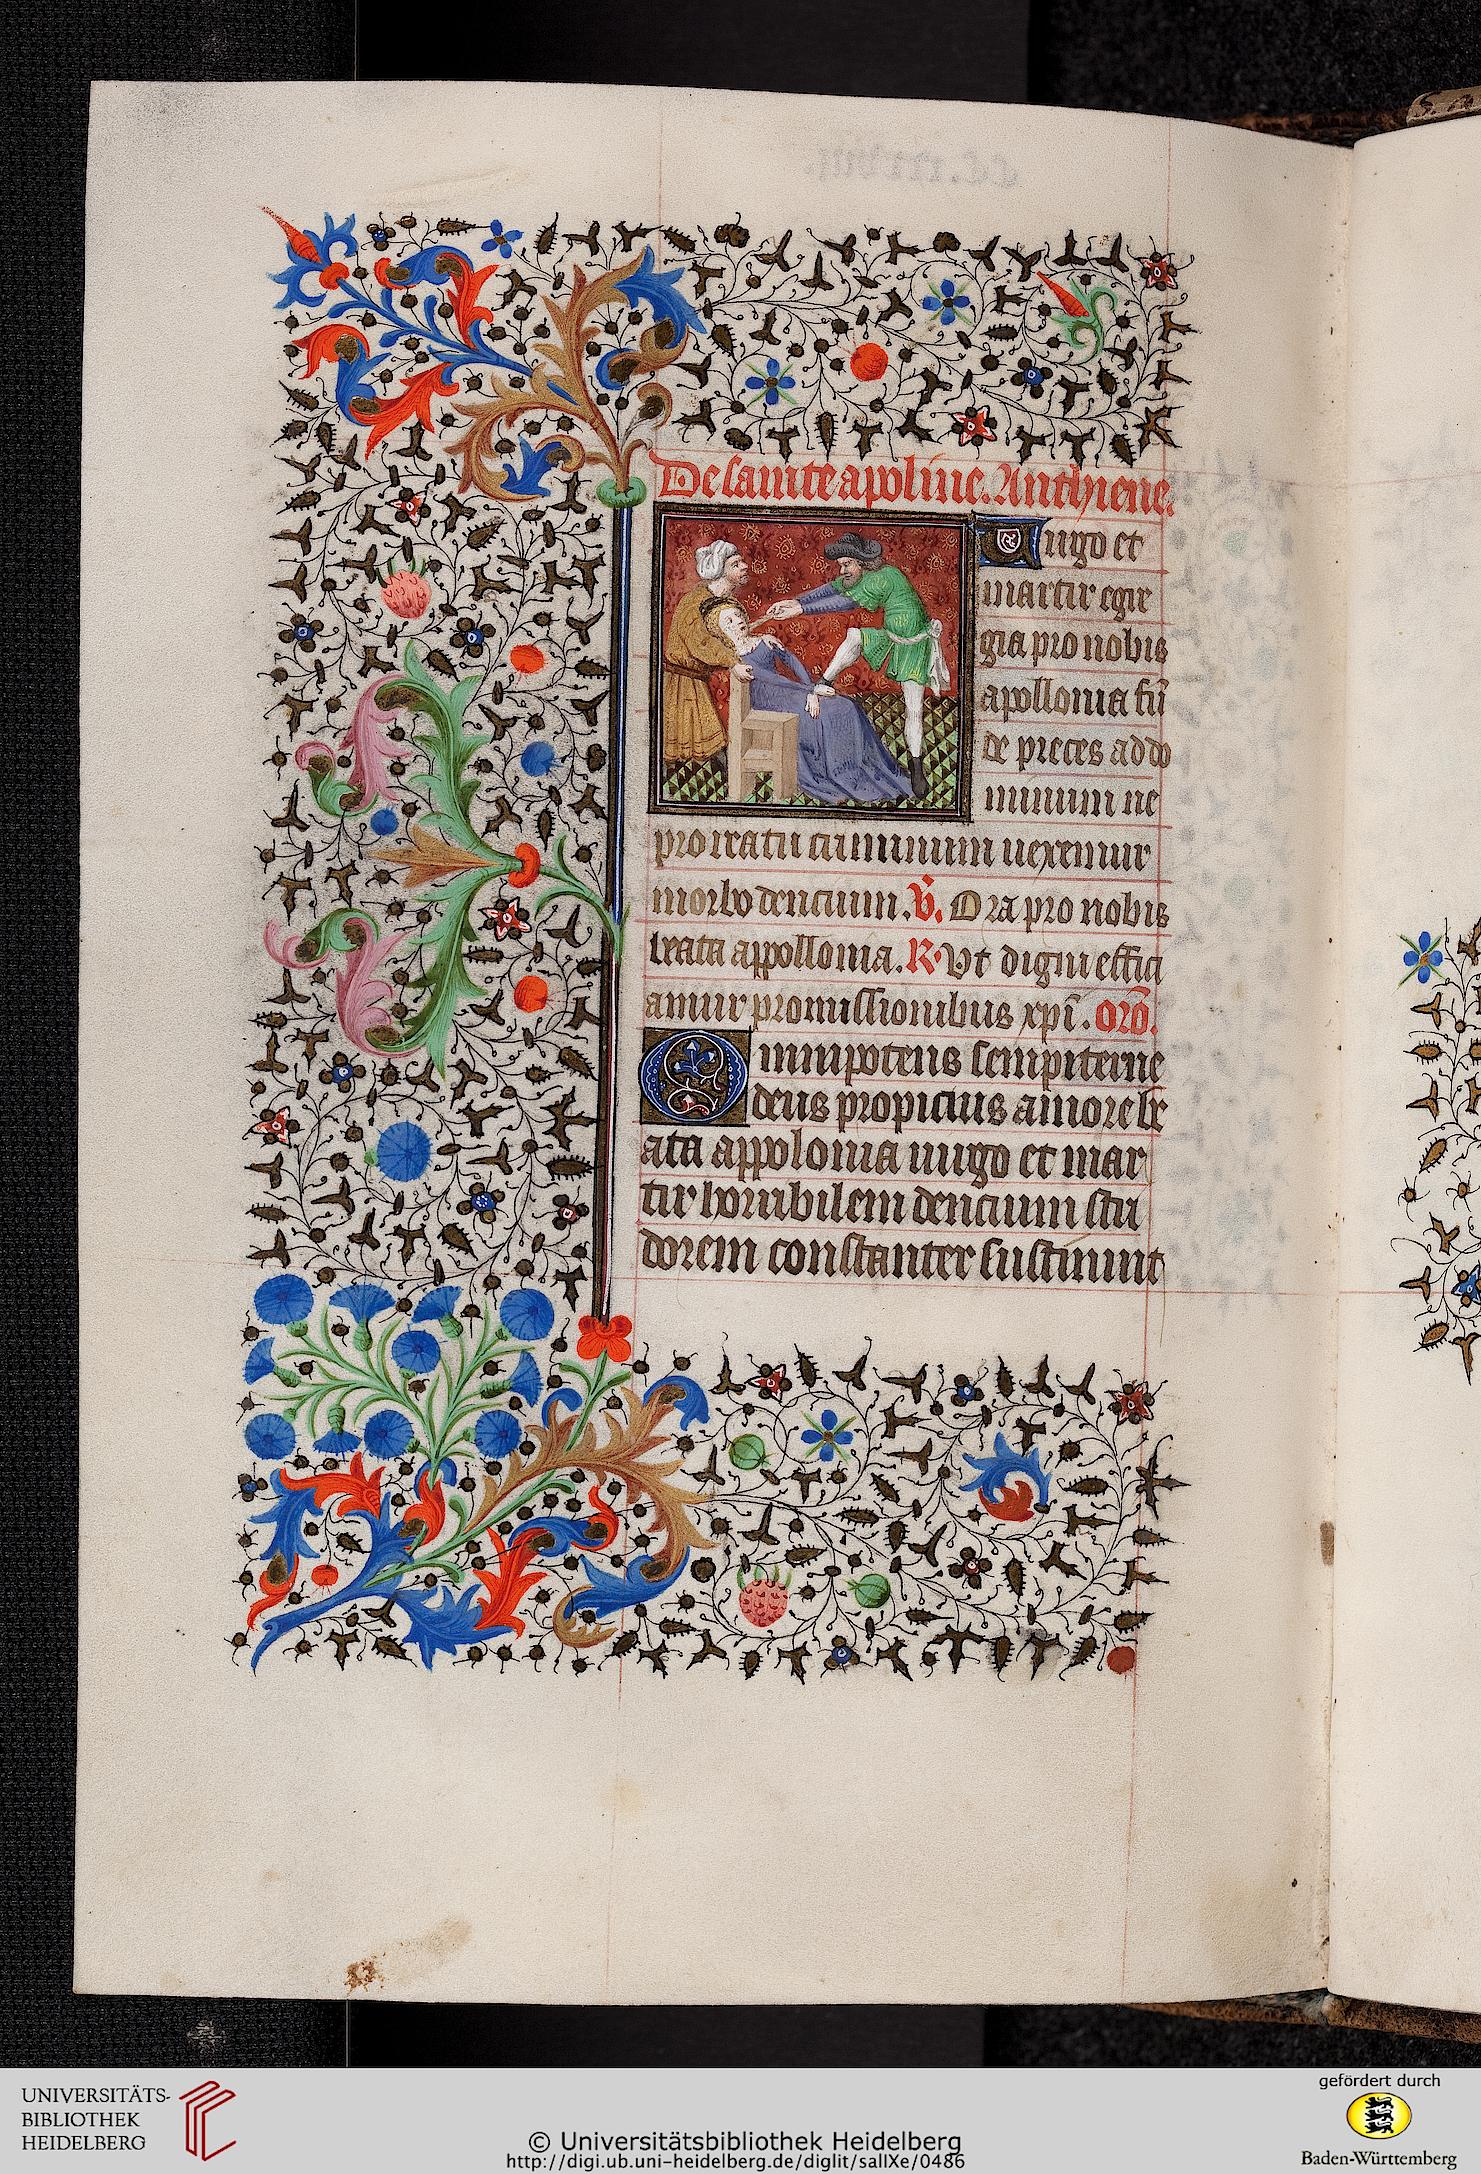 De sainte apoline. Anthiene.
Uirgo et
martir egre
gia pro nobis
apollonia fū
de preces ad do
minum ne
pro reatu criminum uexemur
morbo dencium. V̄. Ora pro nobis
beata appollonia. R. Vt digni effici
amur promissionibus xpī. orō.
Omnipotens sempiterne
deus propicius amore be
ata appolonia uirgo et mar
tir horribilem dencium stri
dorem constanter sustinuit
UNIVERSITÄTS-
BIBLIOTHEK
HEIDELBERG
© Universitätsbibliothek Heidelberg
http://digi.ub.uni-heidelberg.de/diglit/salIXe/0486
gefördert durch
Baden-Württemberg